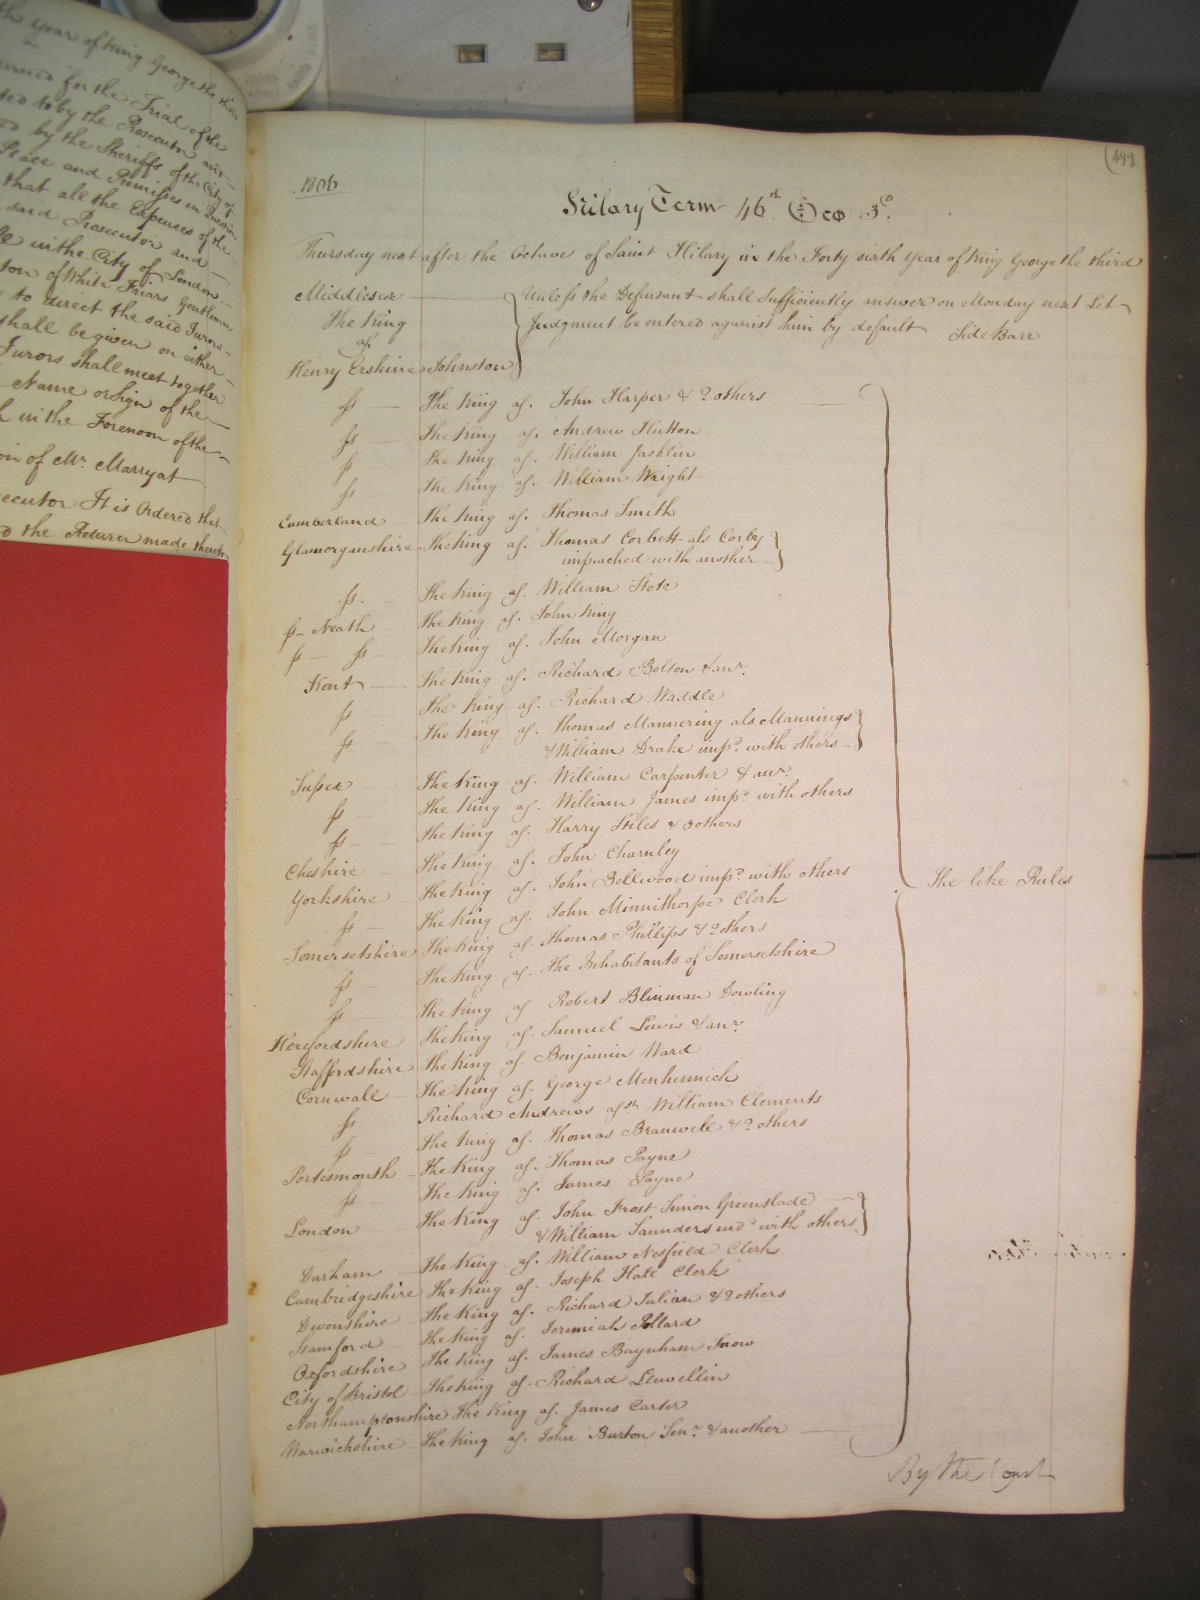 th Year of King George the third
urned for the Trial of the
ted to by the Prosecutor and
ed by the Sheriffs of the City of
Place and Premises in Question
that all the Expences of the
said Prosecutor and
in the City of London
ton of White Friars Gentleman
to direct the said Jurors
shall be given on either
Jurors shall meet together
Name or Sign of the
in the Forenoon of the
on of Mr. Marryat
ecutor It is Ordered that
the Return made thereto
499
1806
Hilary Term 46th Geo 3d.
Thursday next after the Octave of Saint Hilary in the Forty sixth Year of King George the third
Middlesex
The King
agt.
Henry Erskine Johnston
Unless the Defendant shall sufficiently answer on Monday next Let
Judgment be entered against him by default Side Barr
ss The King agt. John Harper & 2 others
ss The King agt. Andrew Hutton
ss The King agt. William Jacklin
ss The King agt. William Wright
Cumberland The King agt. Thomas Smith
Glamorganshire The King agt. Thomas Corbett als Corby
impeached with another
ss. The King agt. William
ss Neath The King agt. John King
ss ss The King agt. John Morgan
Kent The King agt. Richard Bolton & anr.
ss The King agt. Richard Waddle
ss The King agt. Thomas Mannering als Mannings
& William Drake impd. with others
Sussex The King agt. William Carpenter & anr.
ss The King agt. William James impd. with others
ss The King agt. Harry Stiles & 3 others
Cheshire The King agt. John Charnley
Yorkshire The King agt. John Bellwood impd. with others
ss The King agt. John Minnithorpe Clerk
Somersetshire The King agt. Thomas Phillips & 2 others
ss The King agt. The Inhabitants of Somersetshire
ss The King agt. Robert Blinman Dowling
Herefordshire The King agt. Samuel Lewis & anr.
Staffordshire The King agt. Benjamin Ward
Cornwall The King agt. George Menhennick
ss Richard Andrews agst. William Clements
ss The King agt. Thomas Branwell & 2 others
Portesmouth The King agt. Thomas Payne
ss The King agt. James Payne
London The King agt. John Frost Simon Greenslade
& William Saunders ind. with others
Durham The King agt. William Nesfield Clerk
Cambridgeshire The King agt. Joseph Hall Clerk
Devonshire The King agt. Richard Julian & 2 others
Stamford The King agt. Jeremiah Pollard
Oxfordshire The King agt. James Baynham Snow
City of Bristol The King agt. Richard Llewellin
Northamptonshire The King agt. James Carter
Warwickshire The King agt. John Burton Senr. & another
The like Rules
By the Court